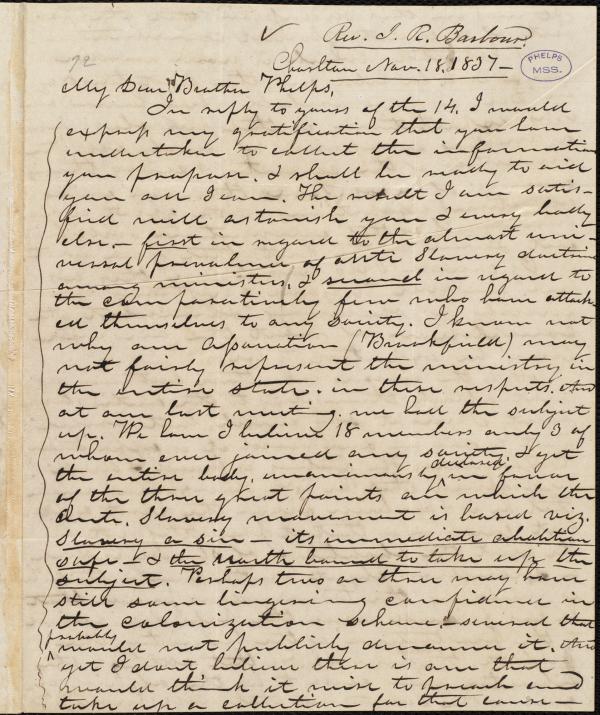 Rev. I. R. Barbour.
Charlton Nov. 18, 1837—
PHELPS
MSS.
72
My Dear Brother Phelps,
In reply to yours of the 14. I would
express my gratification that you have
undertaken to collect the information
you propose. I shall be ready to aid
you all I can. The result I am satis-
fied will astonish you & every body
else,— first in regard to the almost uni-
versal prevalence of anti Slavery doctrine
among ministers, & second in regard to
the comparatively few who have attach
ed themselves to any society. I know not
why our Association (Brookfield) may
not fairly represent the ministry in
the entire state. in these respects. And
at our last meeting. we had the subject
up. We have I believe 18 members only 3 of
whom ever joined any society. & yet
the entire body, unanimously declared in favor
of the three great points on which the
Anti. Slavery movement is based viz.
Slavery a sin — its immediate abolition
safe — & the North bound to take up the
subject. Perhaps two or three may have
still some lingering confidence in
the colonization scheme,— several that
probably would not publicly denounce it. And
yet I dont believe there is one that
would think it wise to preach and
take up a collection for that cause—